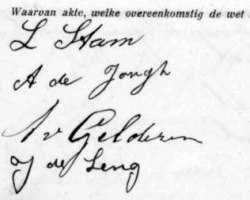 Waarvan akte, welke overeenkomstig de wet
L Stam
A de Jongh
A v Gelderen
J de Leng